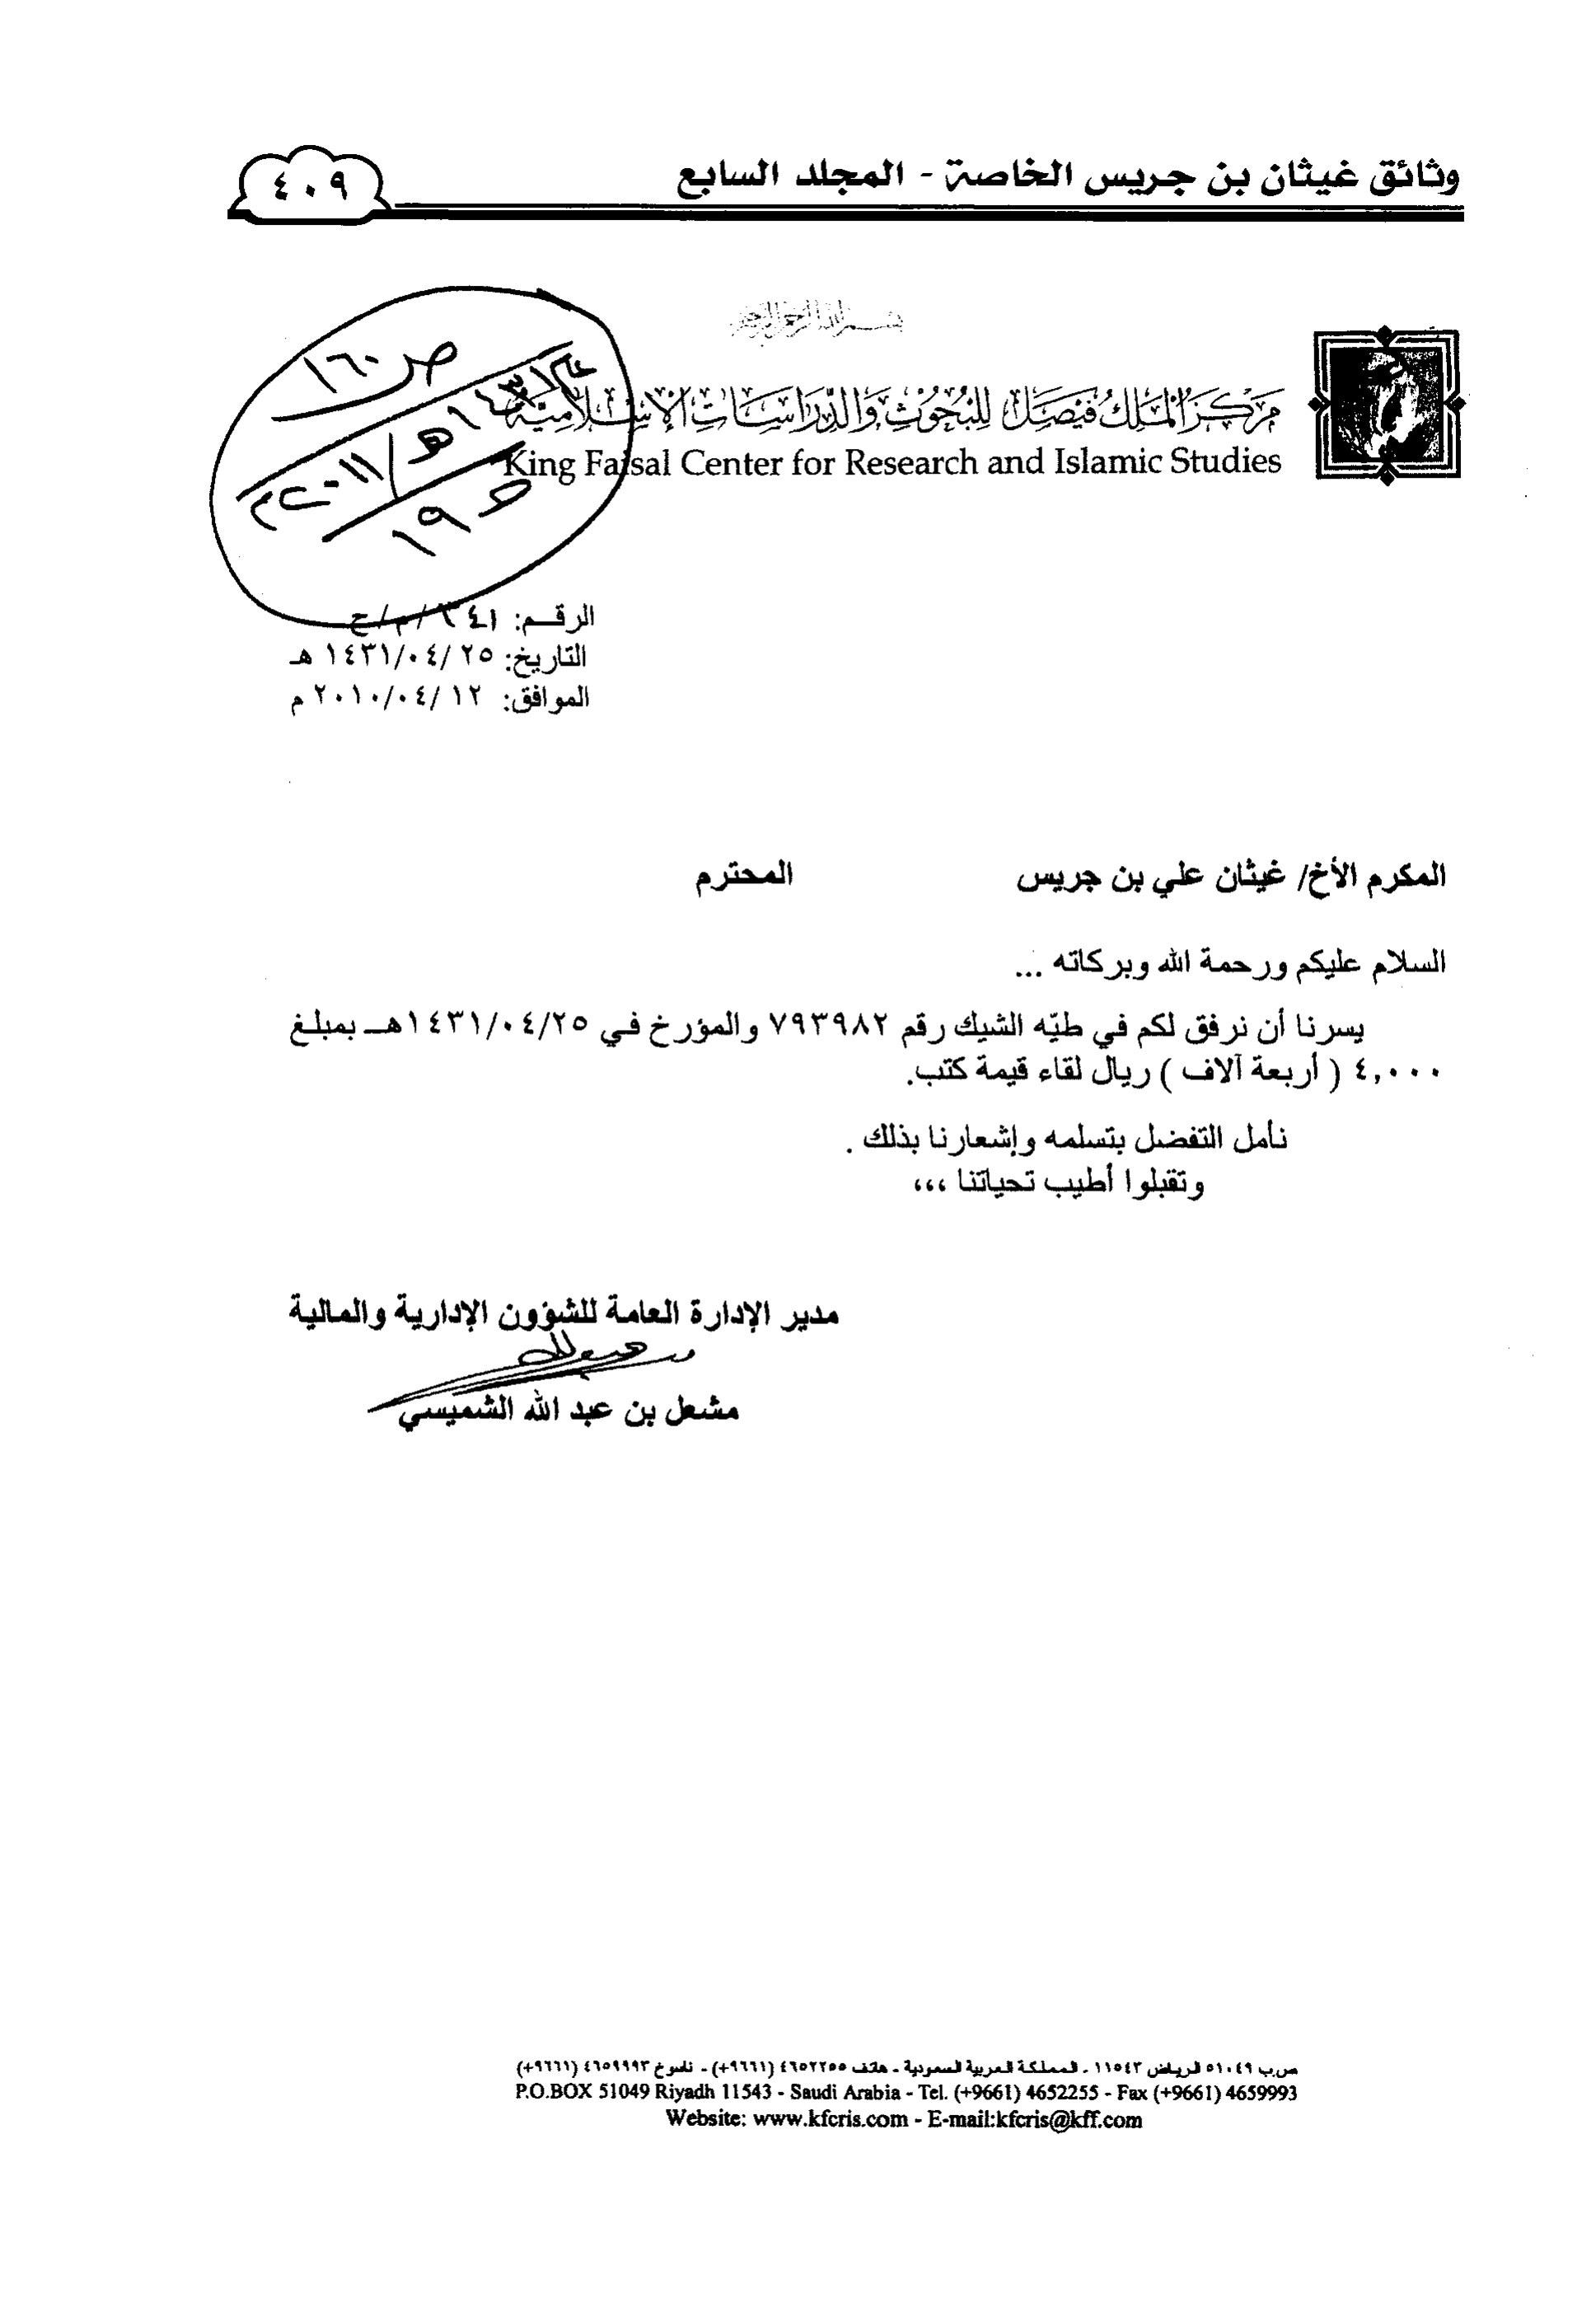 وثائق غيثان بن جريس الخاصة - المجلد السابع
٤٠٩
بسم الله الرحمن الرحيم
مركز الملك فيصل للبحوث والدراسات الإسلامية
King Faisal Center for Research and Islamic Studies
ص ١٦٠
١٩
الرقم: ٣٤١/م/ح
التاريخ: ١٤٣١/٠٤/٢٥ هـ
الموافق: ٢٠١٠/٠٤/١٢ م
المكرم الأخ/ غيثان علي بن جريس المحترم
السلام عليكم ورحمة الله وبركاته ...
يسرنا أن نرفق لكم في طيّه الشيك رقم ٧٩٣٩٨٢ والمؤرخ في ١٤٣١/٠٤/٢٥هـ بمبلغ
٤,٠٠٠ ( أربعة آلاف ) ريال لقاء قيمة كتب.
نأمل التفضل بتسلمه وإشعارنا بذلك .
وتقبلوا أطيب تحياتنا ،،،
مدير الإدارة العامة للشؤون الإدارية والمالية
مشعل بن عبد الله الشميسي
ص.ب ٥١٠٤٩ الرياض ١١٥٤٣ - المملكة العربية السعودية - هاتف ٤٦٥٢٢٥٥ (٩٦٦١+) - ناسوخ ٤٦٥٩٩٩٣ (٩٦٦١+)
P.O.BOX 51049 Riyadh 11543 - Saudi Arabia - Tel. (+9661) 4652255 - Fax (+9661) 4659993
Website: www.kfcris.com - E-mail:kfcris@kff.com